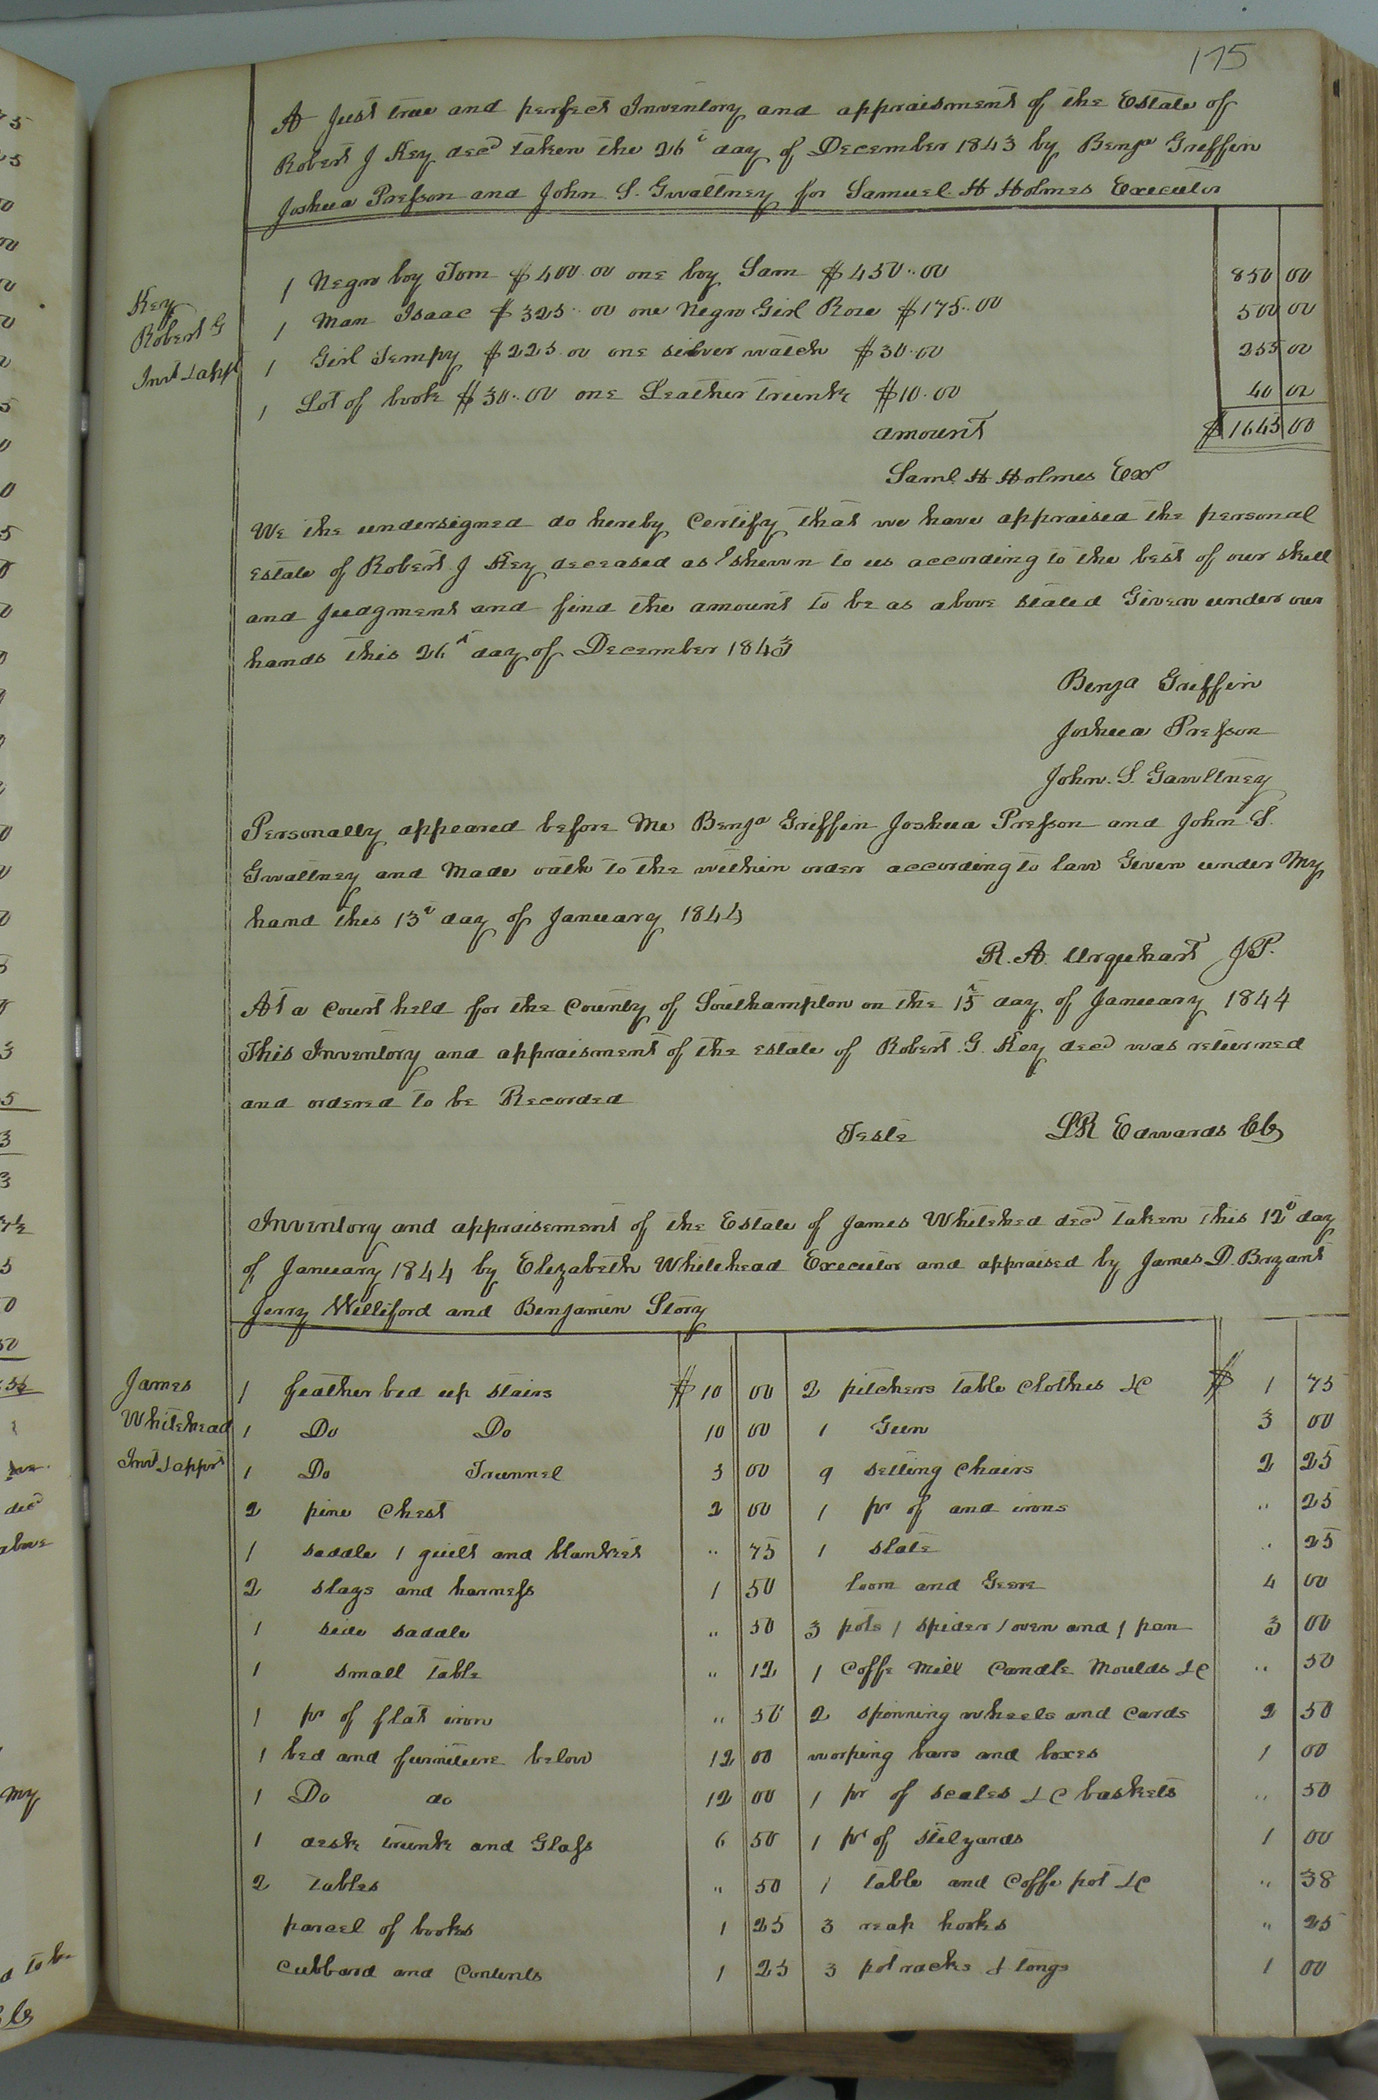 175
A Just true and perfect Inventory and appraisment of the Estate of
Robert J Key decd taken the 26t day of December 1843 by Benja Griffin
Joshua Presson and John S. Gwaltney for Samuel H Holmes Executor
Key
Robert G
Invt & appt
1 Negro boy Tom $400.00 one boy Sam $450..00 850 00
1 Man Isaac $325..00 one Negro Girl Rose $175..00 500 00
1 Girl Tempy $225.00 one silver watch $30.00 255 00
1 Lot of book $30..00 one Leather trunk $10.00 40 00
amount $1645 00
Saml H Holmes Exor
We the undersigned do hereby Certify that we have appraised the personal
Estate of Robert J Key deceased as shewn to us according to the best of our skill
and Judgment and find the amount to be as above stated Given under our
hands this 26t day of December 1843
Benja Griffin
Joshua Presson
John. S. Gawltney
Personally appeared before Me Benja Griffin Joshua Presson and John S.
Gwaltney and Made oath to the within order according to law Given under My
hand this 13t day of January 1844
R. A. Urquhart JP.
At a Court held for the County of Southampton on the 15t day of January 1844
This Inventory and appraisment of the Estate of Robert. G. Key decd was returned
and ordered to be Recorded
Teste LR Edwards Clk
Inventory and appraisement of the Estate of James Whitehed decd taken this 12t day
of January 1844 by Elizabeth Whitehead Executor and appraised by James D. Bryant
Jerry Williford and Benjamin Story
James
Whitehead
Invt & apprt
1 feather bed up stairs $10 00 2 pitchers table Clothes &C $1 75
1 Do Do 10 00 1 Gun 3 00
1 Do Trunnel 3 00 9 setting Chairs 2 25
2 pine Chest 2 00 1 pr of and irons " 25
1 saddle 1 quilt and blanket " 75 1 slate " 25
2 slays and harness 1 50 loom and Geere 4 00
1 side saddle " 50 3 pots 1 spider 1 oven and 1 pan 3 00
1 small table " 12 1 Coffe Mill Candle Moulds &C " 50
1 pr of flat iron " 50 2 spinning wheels and Cards 2 50
1 bed and furniture below 12 00 worping bars and boxes 1 00
1 Do do 12 00 1 pr of scales &C baskets " 50
1 desk trunk and Glass 6 50 1 pr of stilyards 1 00
2 tables " 50 1 table and Coffe pot &C " 38
parcel of books 1 25 3 reap hooks " 25
Cubbard and Contents 1 25 3 pot racks & tongs 1 00